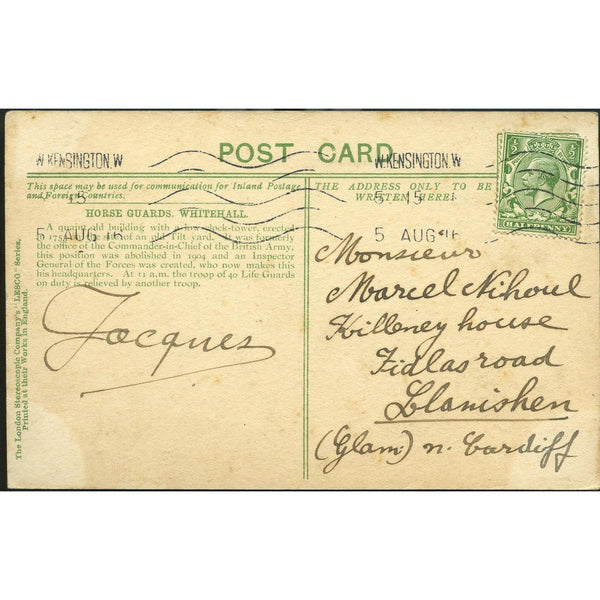 W. KENSINGTON. W
5 15
5 AUG 16
POST CARD.
W. KENSINGTON. W
5 15
5 AUG 16
½ ½
HALFPENNY
This space may be used for communication for Inland Postage
and Foreign Countries.
THE ADDRESS ONLY TO BE
WRITTEN HERE.
HORSE GUARDS, WHITEHALL.
A quaint old building with a low clock-tower, erected
in 175 the site of an old Tilt yard. It was formerly
the office of the Commander-in-Chief of the British Army,
this position was abolished in 1904 and an Inspector
General of the Forces was created, who now makes this
his headquarters. At 11 a.m. the troop of 40 Life Guards
on duty is relieved by another troop.
Jacques
Monsieur
Marcel Nihoul
Killeney house
Fidlas road
Llanishen
(Glam:) n. Cardiff
The London Stereoscopic Company's "LESCO" Series.
Printed at their Works in England.